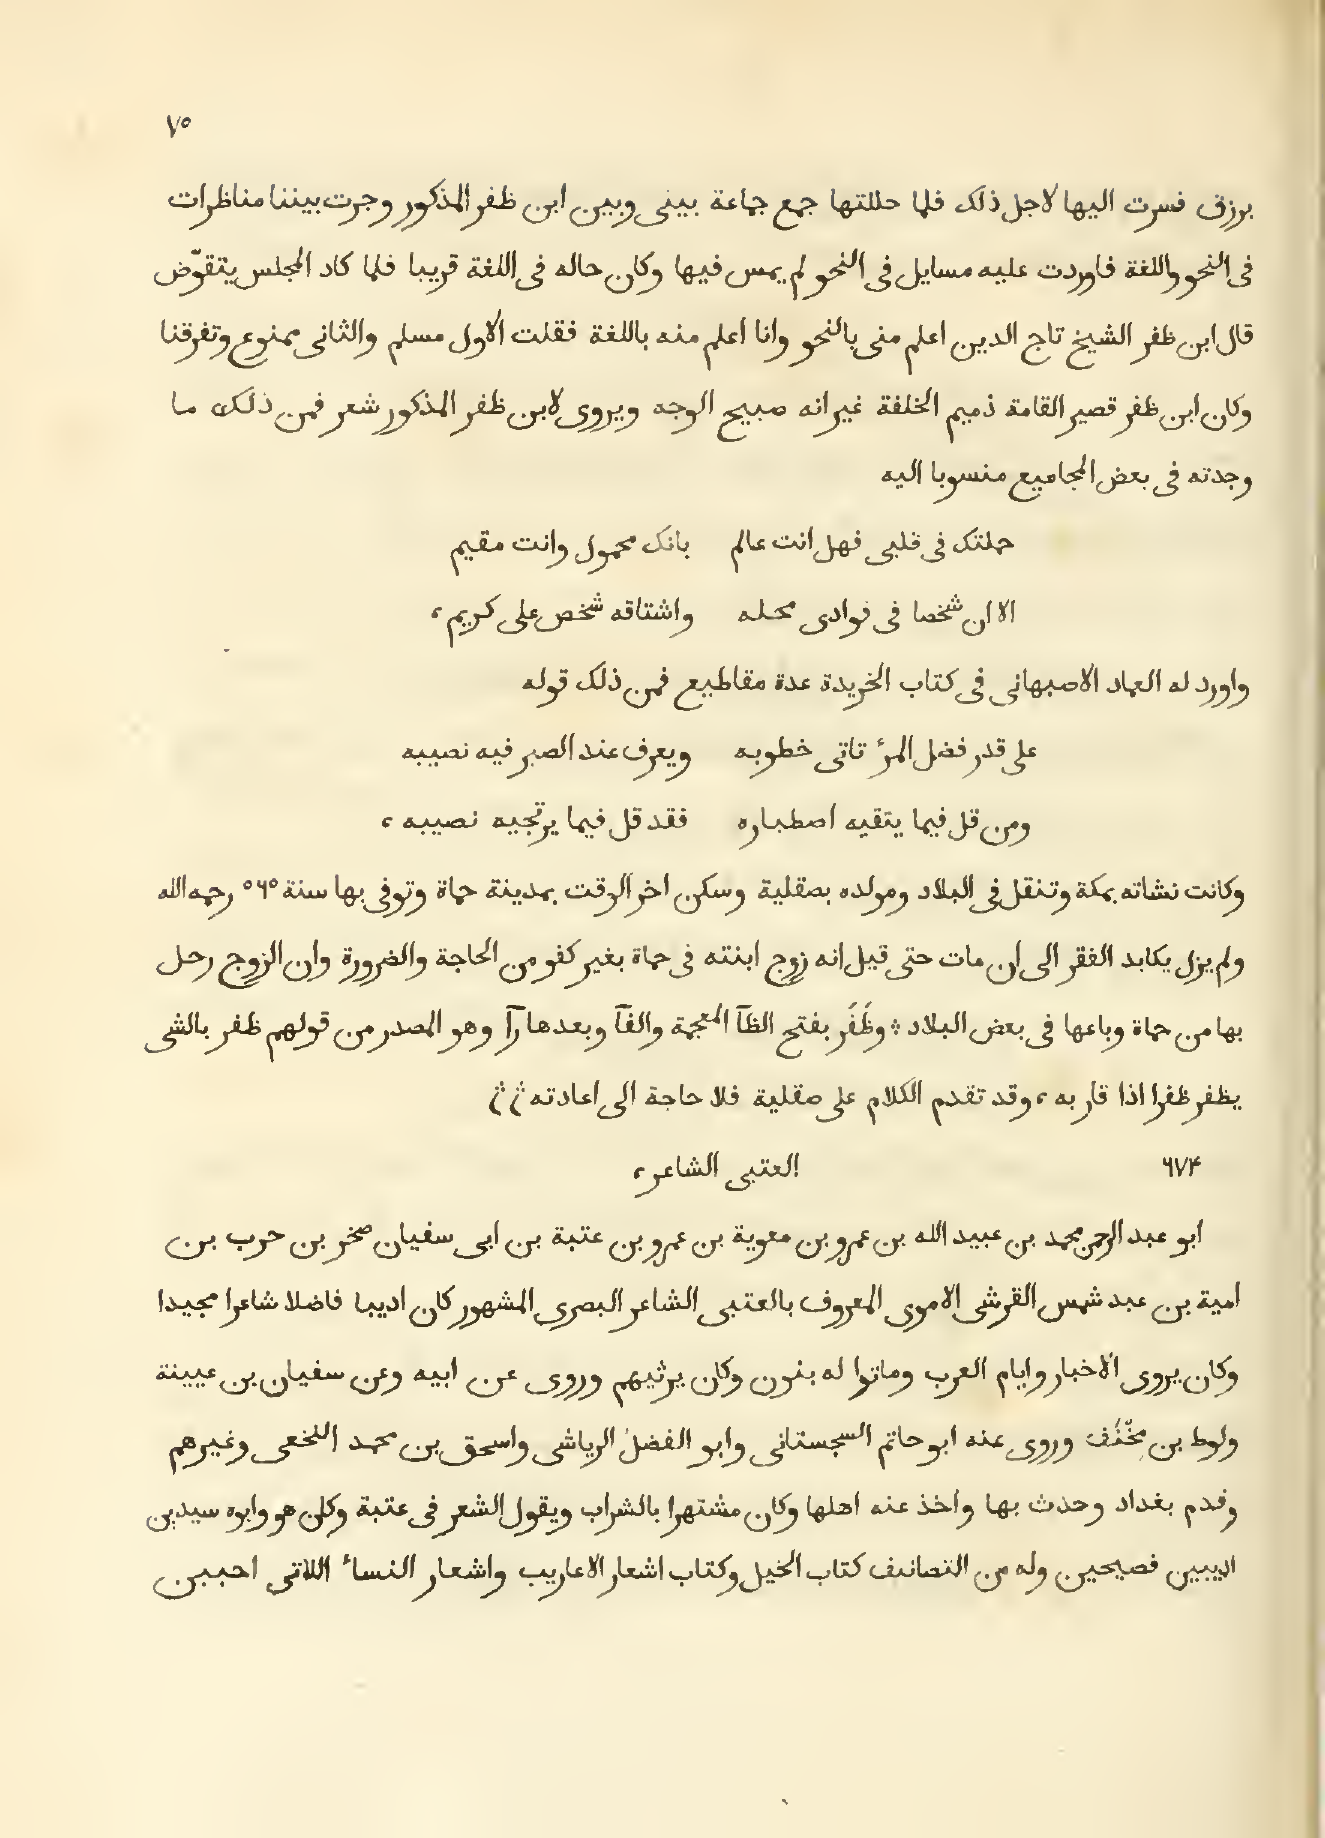 ٧٥
برزق فسرت اليها لاجل ذلك فلما حللتها جمع جماعة بينى وبين ابن ظفر المذكور وجرت بيننا مناظرات
فى النحو واللغة فاوردت عليه مسايل فى النحو لم يمس فيها وكان حاله فى اللغة قريبا فلما كاد المجلس يتقوّض
قال ابن ظفر الشيخ تاج الدين اعلم منى بالنحو وانا اعلم منه باللغة فقلت الاول مسلم والثانى ممنوع وتفرقنا
وكان ابن ظفر قصير القامة ذميم الخلقة غير انه صبيح الوجه ويروى لابن ظفر المذكور شعر فمن ذلك ما
وجدته فى بعض المجاميع منسوبا اليه
حملتك فى قلبى فهل انت عالم بانك محمول وانت مقيم
الا ان شخصا فى فوادى محله واشتاقه شخص على كريم ،
واورد له العماد الاصبهانى فى كتاب الخريدة عدة مقاطيع فمن ذلك قوله
على قدر فضل المرءٔ تاتى خطوبه ويعرف عند الصبر فيه نصيبه
ومن قل فيما يتقيه اصطباره فقد قل فيما يرتجيه نصيبه ،
وكانت نشاته بمكة وتنقل فى البلاد ومولده بصقلية وسكن اخر الوقت بمدينة حماة وتوفى بها سنة ٥٦٥ رحمه الله
ولم يزل يكابد الفقر الى ان مات حتى قيل انه زوج ابنته فى حماة بغير كفو من الحاجة والضرورة وان الزوج رحل
بها من حماة وباعها فى بعض البلاد ؞ وظَفَر بفتح الظآ المعجمة والفآ وبعدها رآ وهو المصدر من قولهم ظفر بالشى
يظفر ظفرا اذا فاز به ، وقد تقدم الكلام على صقلية فلا حاجة الى اعادته
٦٧۴ العتبى الشاعر ،
ابو عبد الرحمن محمد بن عبيد الله بن عمرو بن معوية بن عمرو بن عتبة بن ابى سفيان صخر بن حرب بن
امية بن عبد شمس القرشى الاموى المعروف بالعتبى الشاعر البصرى المشهور كان اديبا فاضلا شاعرا مجيدا
وكان يروى الاخبار وايام العرب وماتوا له بنون وكان يرثيهم وروى عن ابيه وعن سفيان بن عيينة
ولوط بن مِخْنَف وروى عنه ابو حاتم السجستانى وابو الفضل الرياشى واسحق بن محمد النخعى وغيرهم
وقدم بغداد وحدث بها واخذ عنه اهلها وكان مشتهرا بالشراب ويقول الشعر فى عتبة وكان هو وابوه سيدين
اديبين فصيحين وله من التصانيف كتاب الخيل وكتاب اشعار الاعاريب واشعار النساءٔ اللاتى احببن